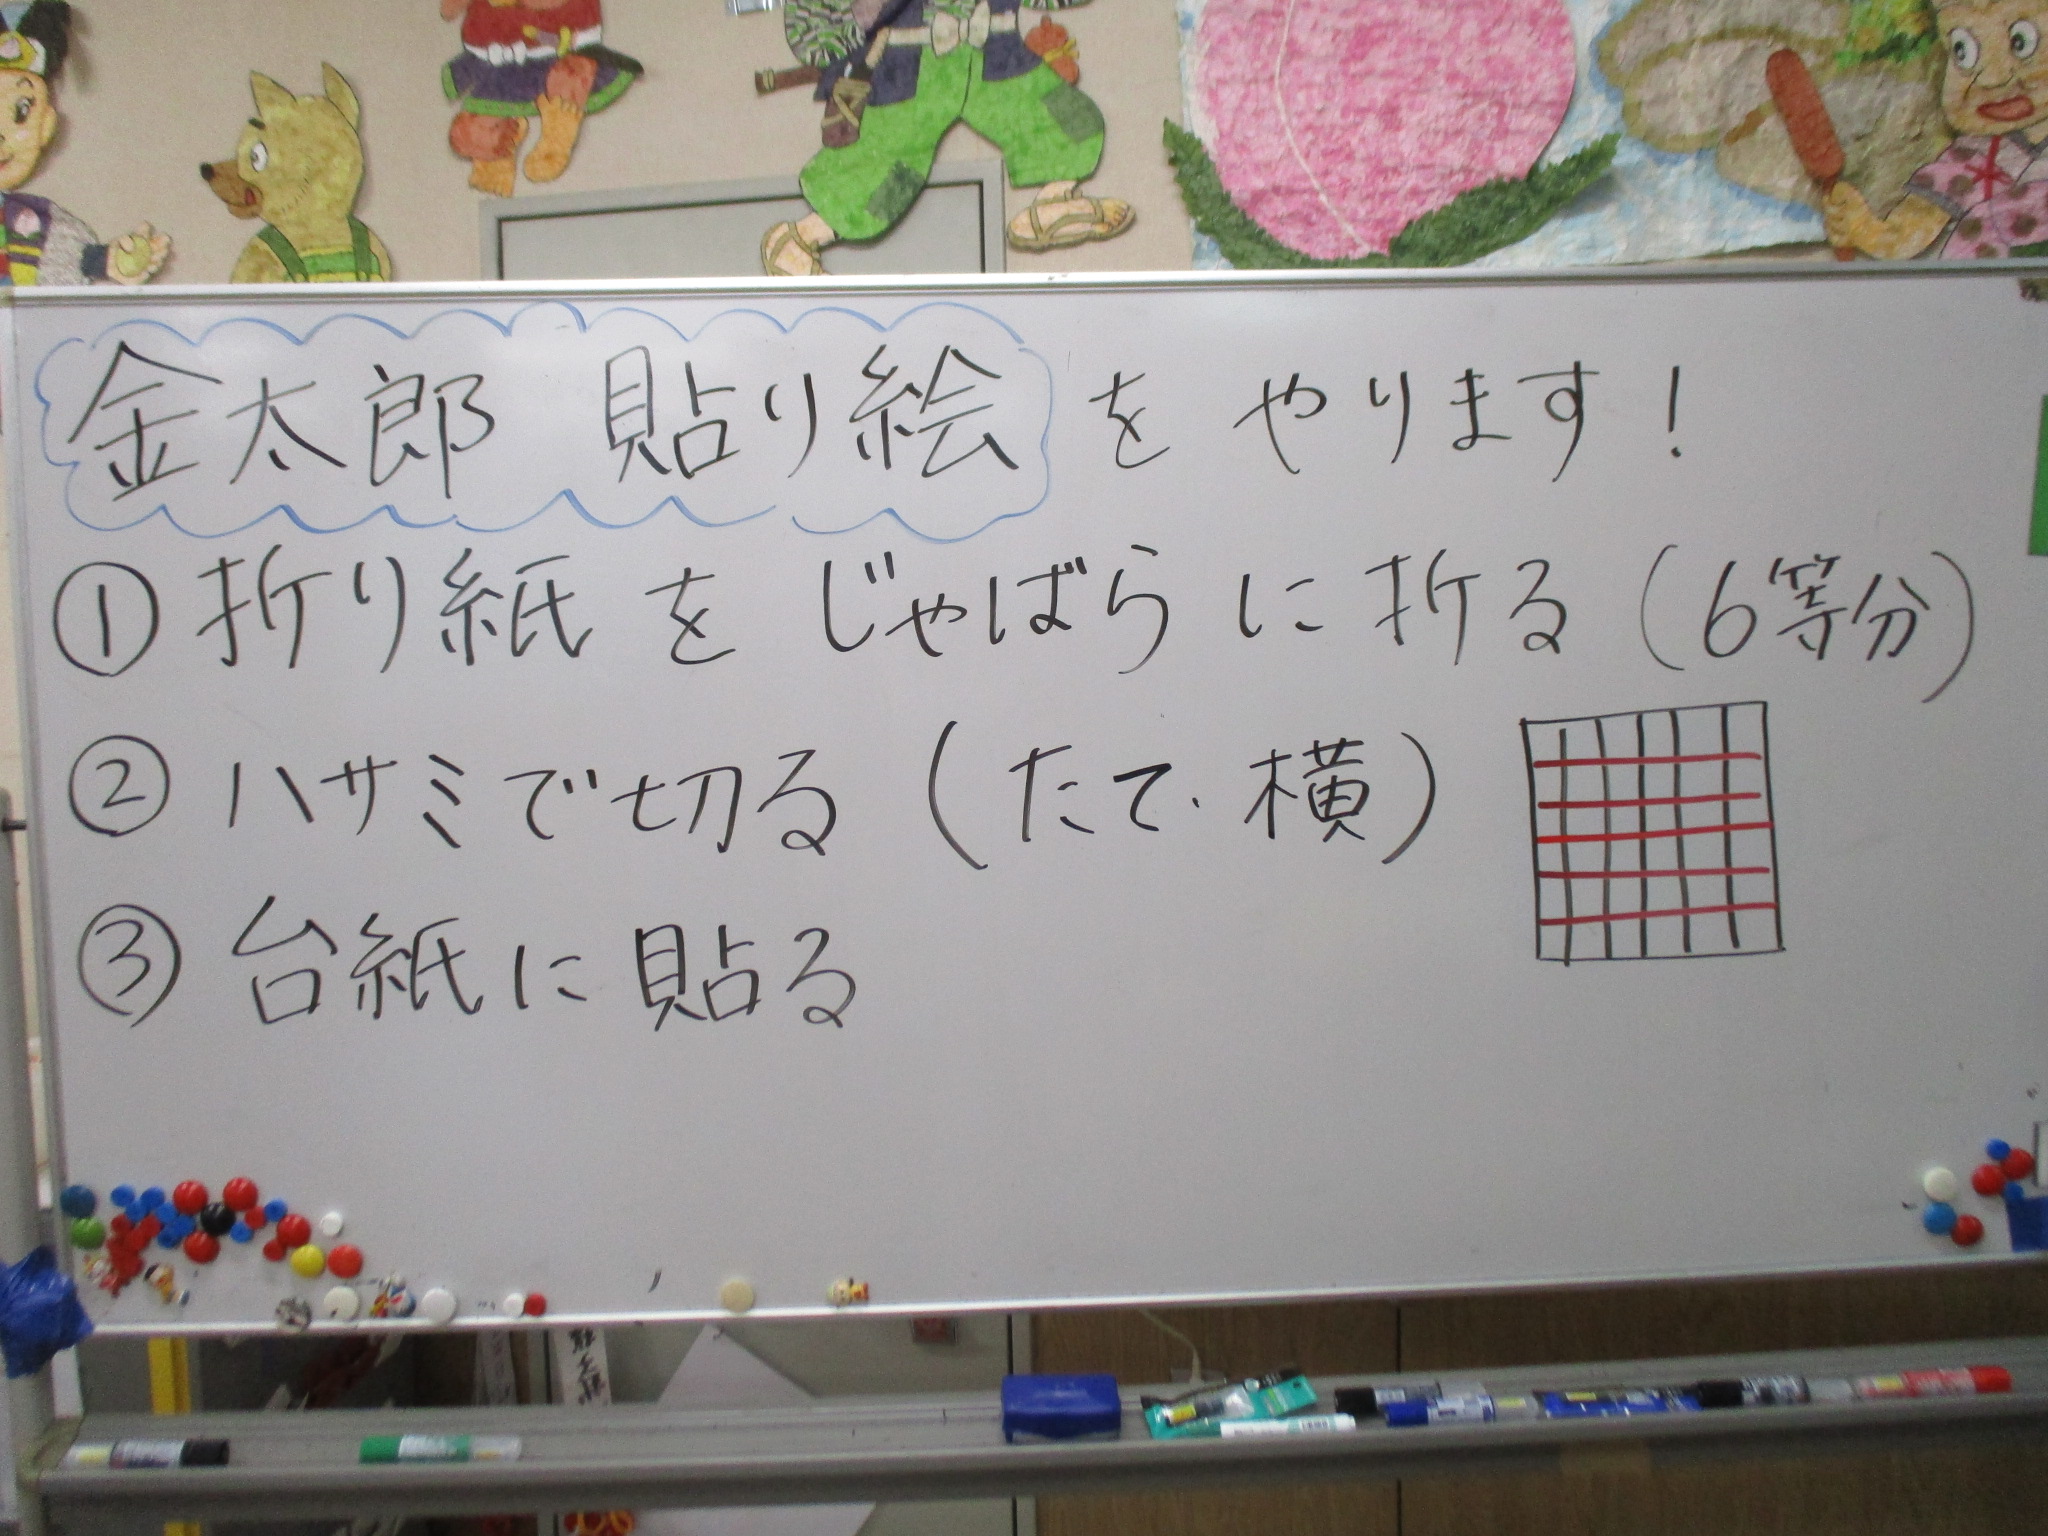 金太郎 貼り絵 を やります!
① 折り紙 を じゃばら に 折る (6等分)
② ハサミで切る (たて・横)
③ 台紙に貼る